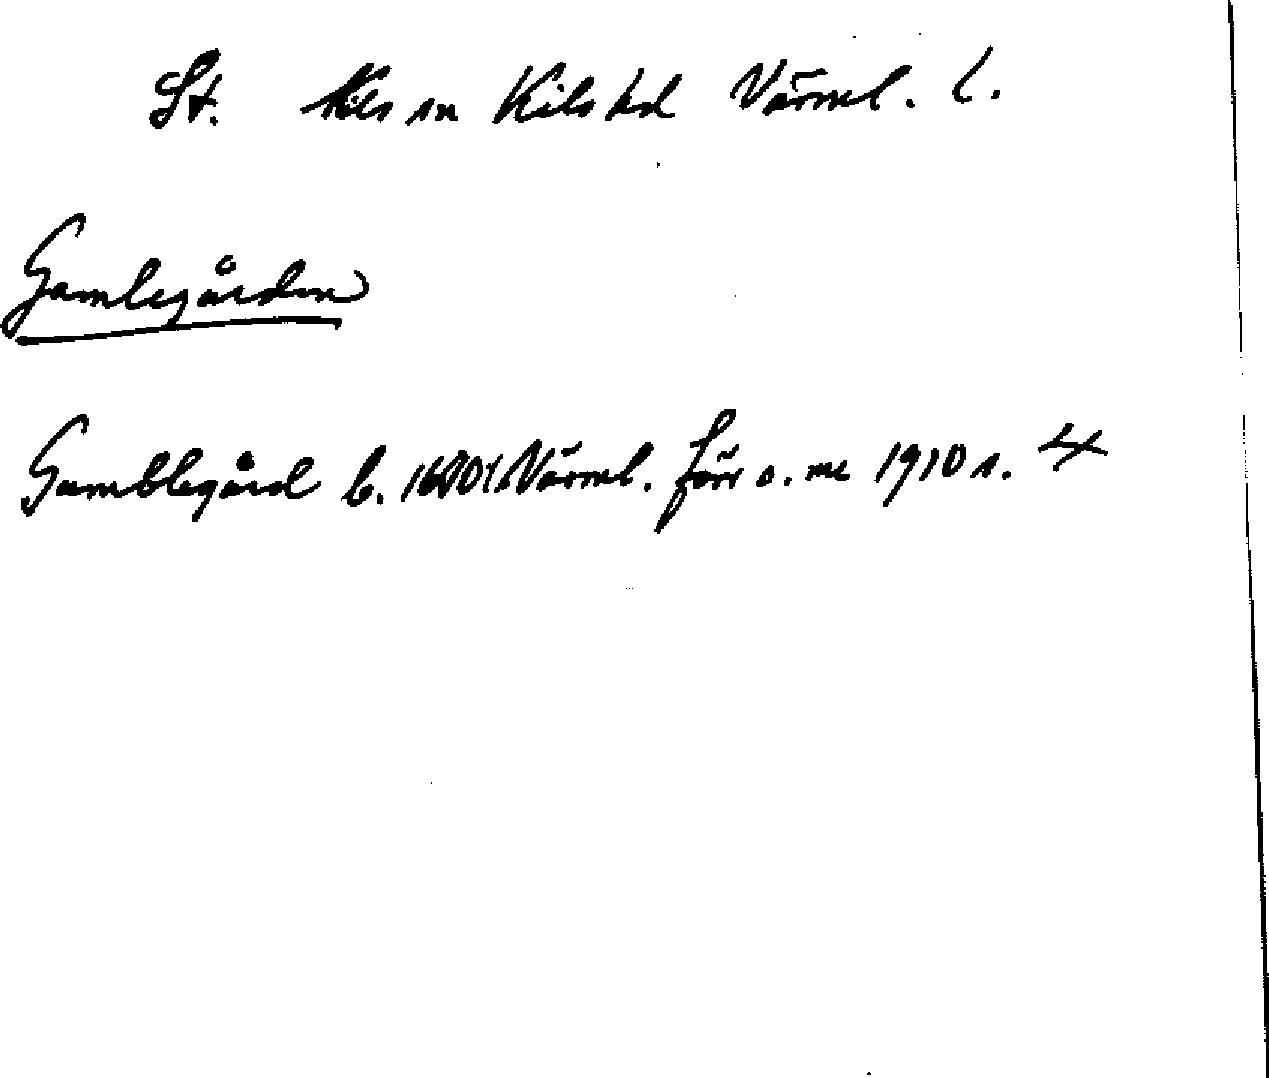 St. Kils sn Kils hd Värml. l.
Gamlegården
Gamblegård b. Värml. förr o. nu 1910 s. 4